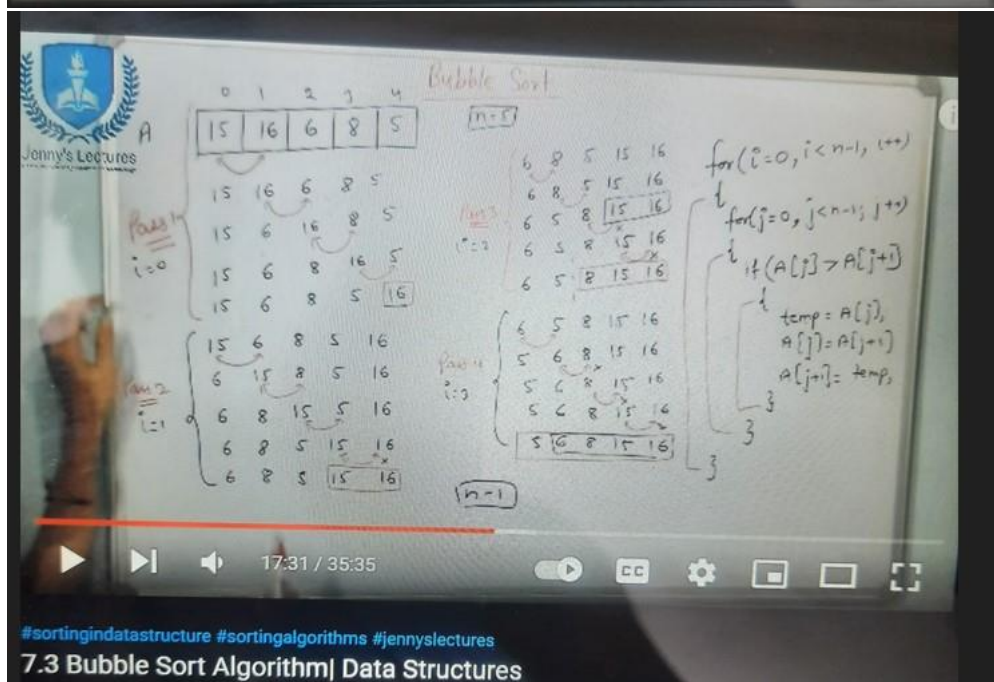 Jenny's Lectures
Bubble Sort
n=5
0 1 2 3 4
A
15 16 6 8 5
Pass 1
i=0
15 16 6 8 5
15 6 16 8 5
15 6 8 16 5
15 6 8 5 16
Pass 2
i=1
15 6 8 5 16
6 15 8 5 16
6 8 15 5 16
6 8 5 15 16
6 8 5 15 16
Pass 3
i=2
6 8 5 15 16
6 8 5 15 16
6 5 8 15 16
6 5 8 15 16
6 5 8 15 16
Pass 4
i=3
6 5 8 15 16
5 6 8 15 16
5 6 8 15 16
5 6 8 15 16
5 6 8 15 16
n-1
for(i=0, i<n-1, i++)
{
for(j=0, j<n-1; j++)
{
if(A[j] > A[j+1]
{
temp = A[j],
A[j] = A[j+1]
A[j+1] = temp,
}
}
}
17:31 / 35:35
CC
#sortingindatastructure #sortingalgorithms #jennyslectures
7.3 Bubble Sort Algorithm| Data Structures